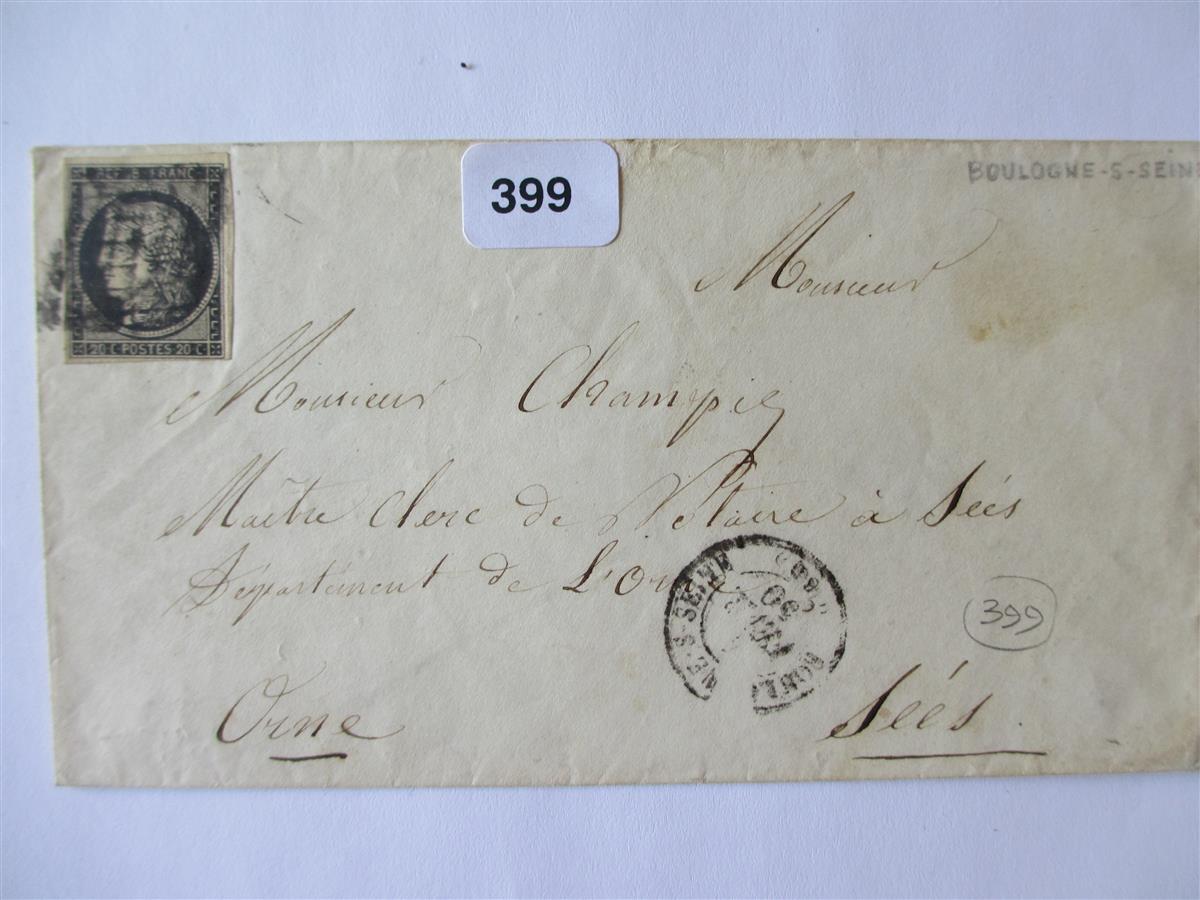 REPUB. FRANC.
20 C POSTES 20 C
399
BOULOGNE-S-SEINE
Monsieur
Monsieur Champig
Maître Clerc de Notaire à Séés
Département de L'Orne
399
Orne
Séés.